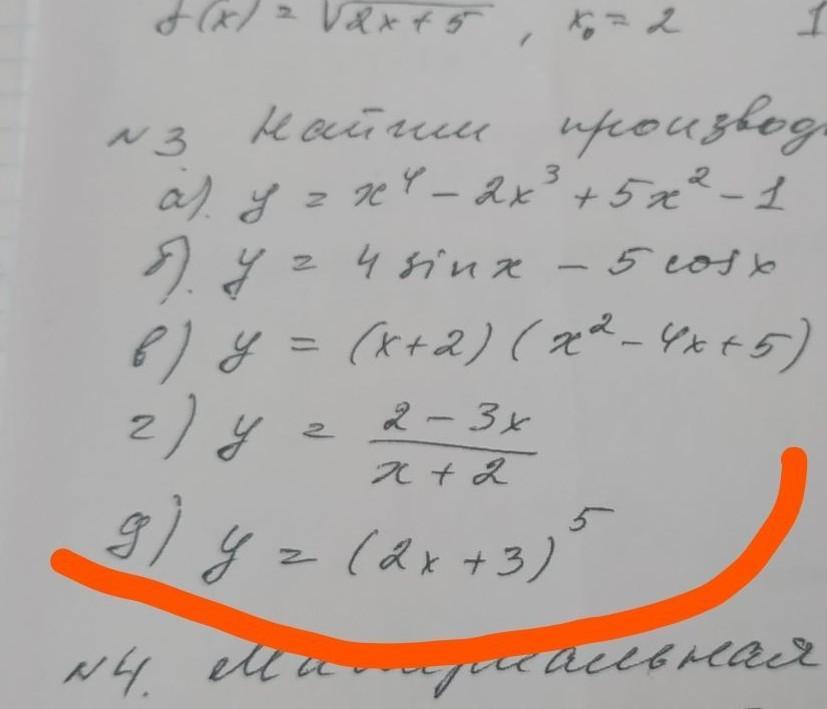 f(x) = √2x+5 , x₀ = 2 1
№3 Найти производ
а). y = x⁴ - 2x³ + 5x² - 1
б). y = 4 sin x - 5 cos x
в) y = (x+2) (x² - 4x + 5)
г) y = (2 - 3x)/(x + 2)
д) y = (2x + 3)⁵
№4. Материальная